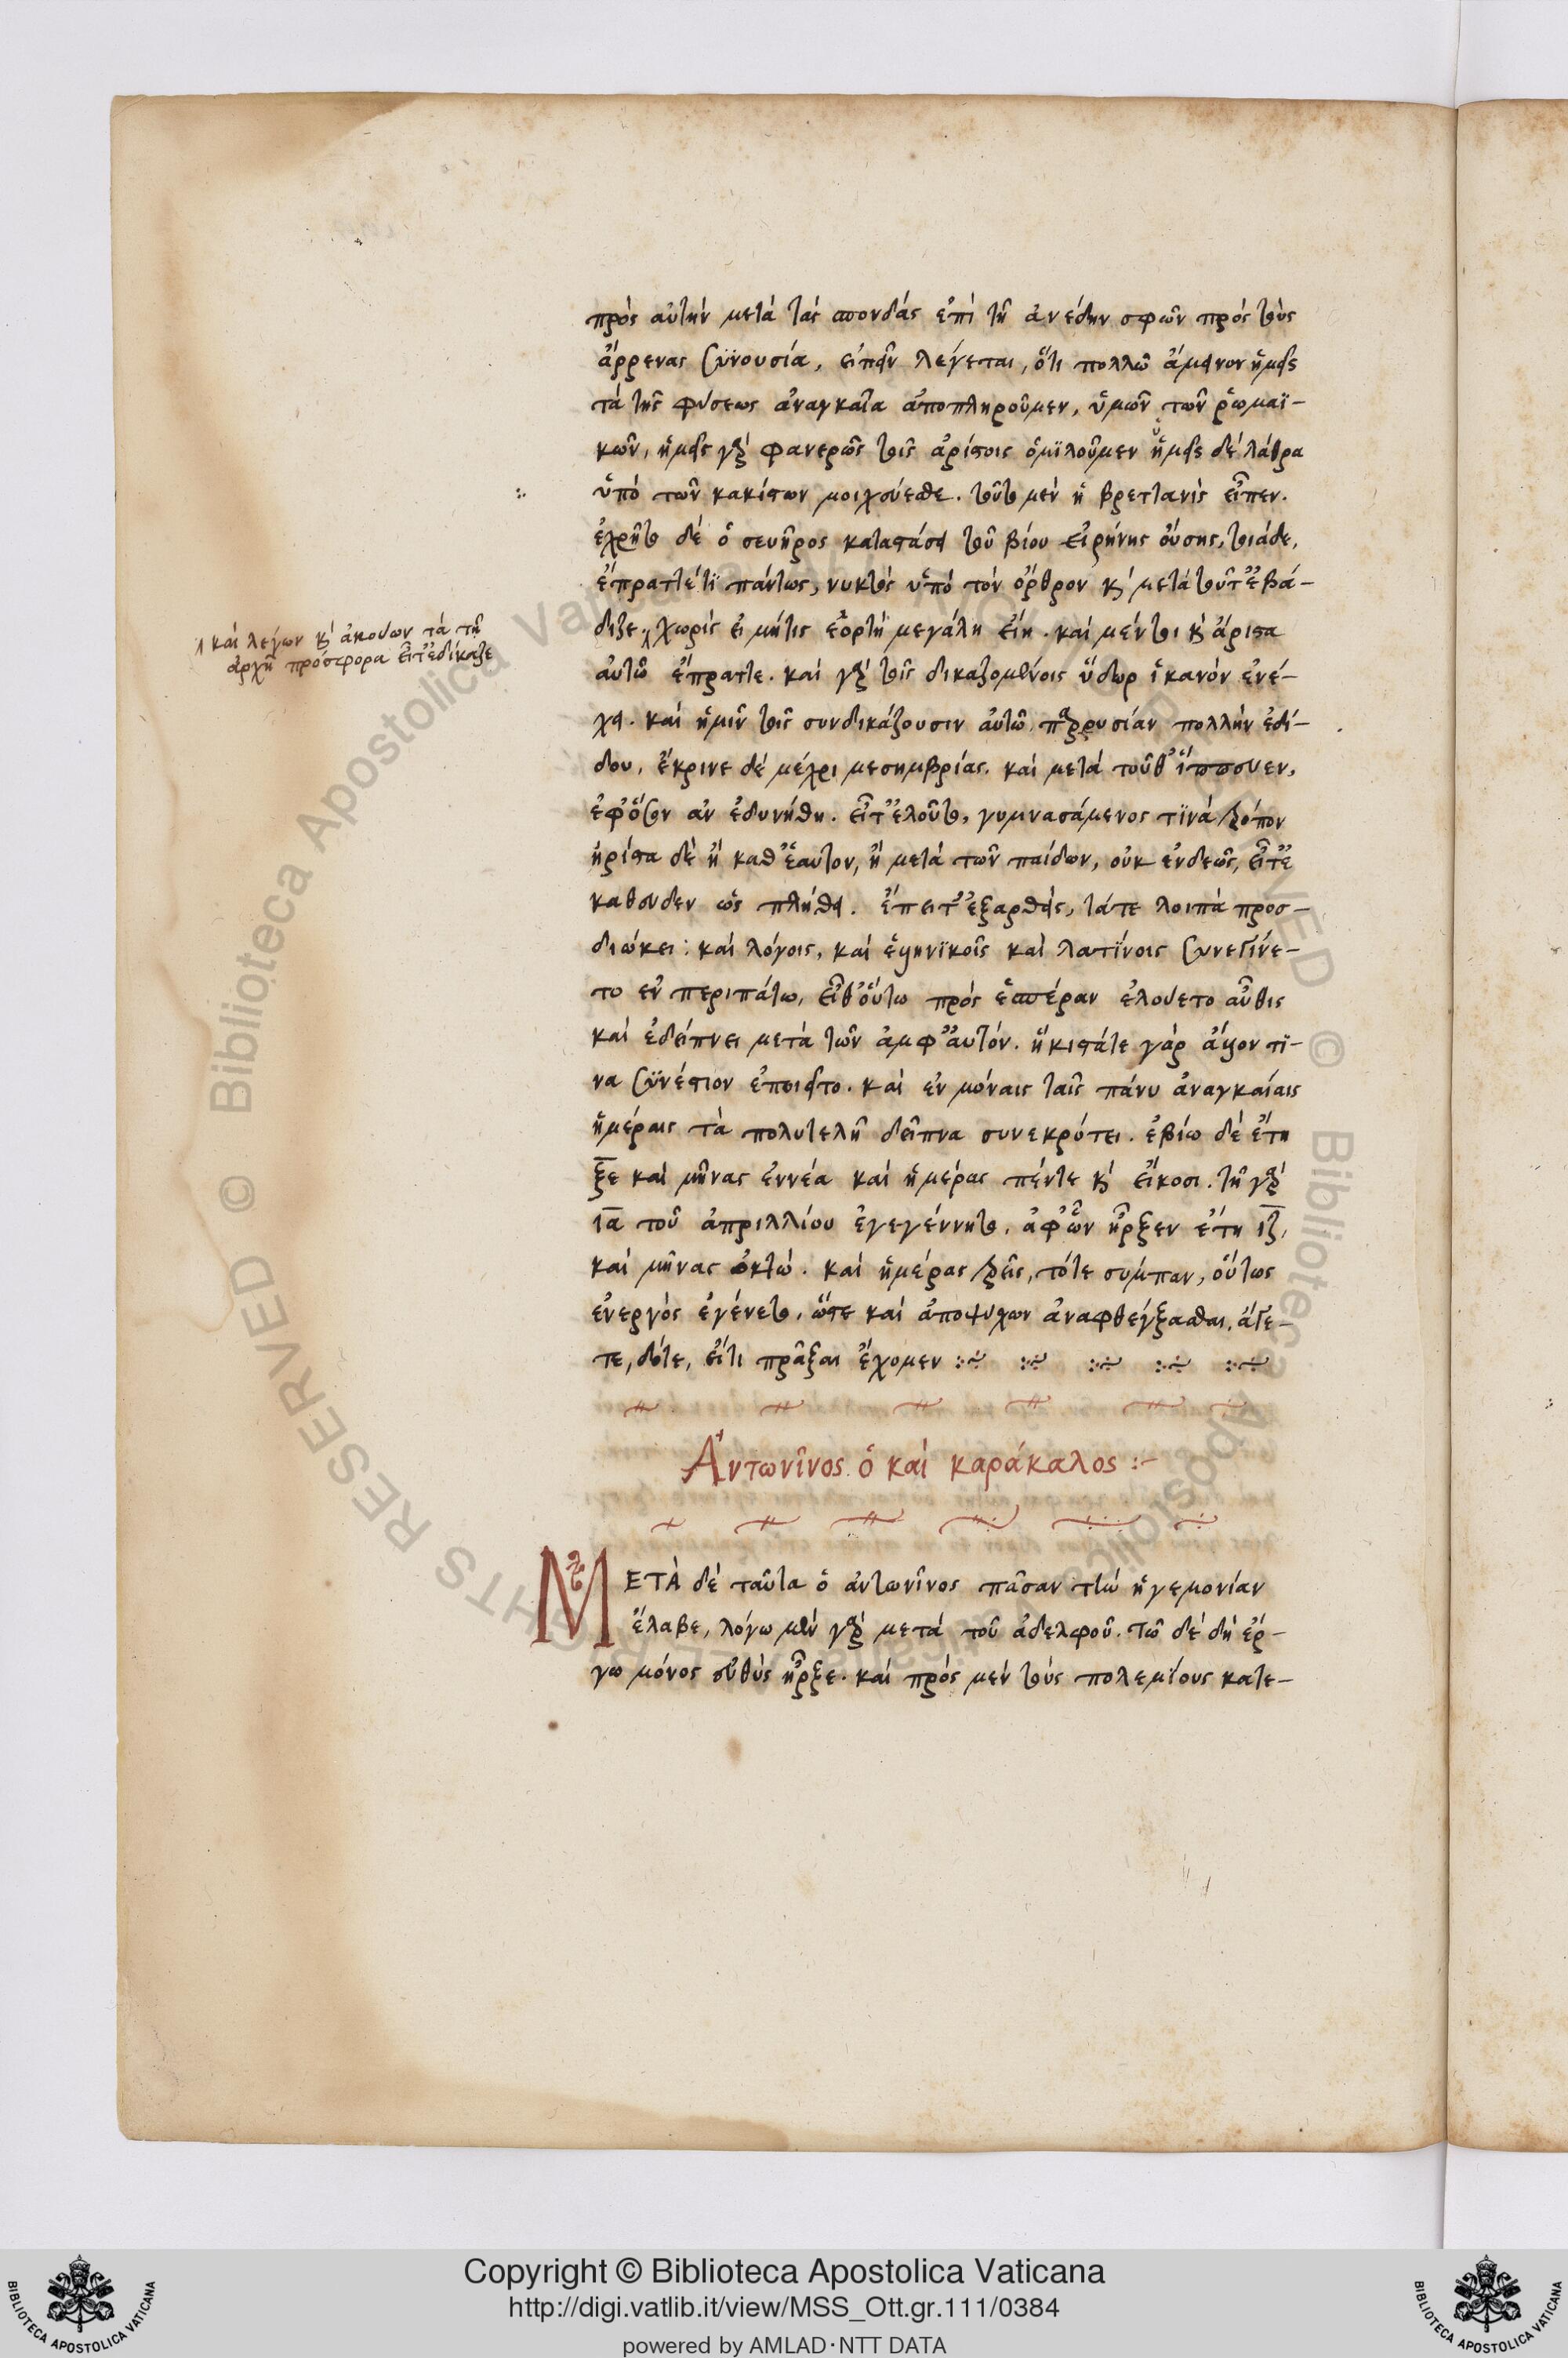 πρὸς αὐτὴν μετὰ τὰς σπονδὰς ἐπὶ τῇ ἀνέδην σφῶν πρὸς τοὺς
ἄρρενας συνουσία, εἰπεῖν λέγεται, ὅτι πολλῶ ἄμεινον ἡμεῖς
τὰ τῆς φύσεως ἀναγκαῖα ἀποπληροῦμεν, ὑμῶν τῶν ῥωμαϊ-
κῶν, ἡμεῖς γὰρ φανερῶς τοῖς ἀρίστοις ὁμιλοῦμεν ὑμεῖς δὲ λάθρα
ὑπὸ τῶν κακίστων μοιχεύεσθε. τοῦτο μὲν ἡ βρεττανὶς εἶπεν.
ἐχρῆτο δὲ ὁ σευῆρος καταστάσει τοῦ βίου εἰρήνης οὔσης, τοιᾶδε,
ἔπραττέ τι πάντως, νυκτὸς ὑπὸ τὸν ὄρθρον κ̀ μετὰ τοῦτ' ἐβά-
διζε, χωρὶς εἰ μήτις ἑορτὴ μεγάλη εἴη. καὶ μέντοι κ̀ ἄριστα
καὶ λέγων κ̀ ἀκούων τὰ τῆ
ἀρχῆ πρόσφορα εἶτ' ἐδίκαζε
αὐτῶ ἔπραττε. καὶ γὰρ τοῖς δικαζομένοις ὕδωρ ἱκανὸν ἐνέ-
χει. καὶ ἡμῖν τοῖς συνδικάζουσιν αὐτῶ παρρησίαν πολλὴν ἐδί-
δου, ἔκρινε δὲ μέχρι μεσημβρίας. καὶ μετὰ τοῦθ' ἵππευεν,
ἐφ' ὅσον ἂν ἐδυνήθη. εἶτ' ἐλοῦτο, γυμνασάμενος τινὰ τρόπον
ἠρίστα δὲ ἢ καθ' ἑαυτὸν, ἢ μετὰ τῶν παίδων, οὐκ ἐνδεῶς, εἶτ' ἐ
καθευδεν ὡς πλήθει. ἔπειτ' ἐξαρθεὶς, τάτε λοιπὰ προσ-
διώκει: καὶ λόγοις, καὶ ἑλληνικοῖς καὶ λατίνοις συνεγίνε-
το ἐν περιπάτω, εἶθ' οὕτω πρὸς ἑσπέραν ἐλούετο αὖθις
καὶ ἐδείπνει μετὰ τῶν ἀμφ' αὐτόν. ἥκιστάτε γὰρ ἄλλον τι-
να συνέστιον ἐποιεῖτο. καὶ ἐν μόναις ταῖς πάνυ ἀναγκαίαις
ἡμέραις τὰ πολυτελῆ δεῖπνα συνεκρότει. ἐβίω δὲ ἔτη
ξε καὶ μῆνας ἐννέα καὶ ἡμέρας πέντε κ̀ εἴκοσι. τῆ γὰρ
ια τοῦ ἀπριλλίου ἐγεγέννητο. ἀφ' ὧν ἦρξεν ἔτη ιζ,
καὶ μῆνας ὀκτώ. καὶ ἡμέρας τρεῖς, τότε σύμπαν, οὕτως
ἐνεργὸς ἐγένετο. ὥστε καὶ ἀποψύχων ἀναφθέγξασθαι, ἄγε-
τε, δότε, εἴτι πρᾶξαι ἔχομεν :~
Ἀντωνῖνος ὁ καὶ καράκαλος :~
ΜΕΤᾺ δὲ ταῦτα ὁ ἀντωνῖνος πᾶσαν τὴν ἡγεμονίαν
ἔλαβε, λόγω μὲν γὰρ μετὰ τοῦ ἀδελφοῦ. τῶ δὲ δὴ ἔρ-
γω μόνος εὐθὺς ἦρξε. καὶ πρὸς μὲν τοὺς πολεμίους κατε-
Copyright © Biblioteca Apostolica Vaticana
http://digi.vatlib.it/view/MSS_Ott.gr.111/0384
powered by AMLAD·NTT DATA
BIBLIOTECA APOSTOLICA VATICANA
BIBLIOTECA APOSTOLICA VATICANA